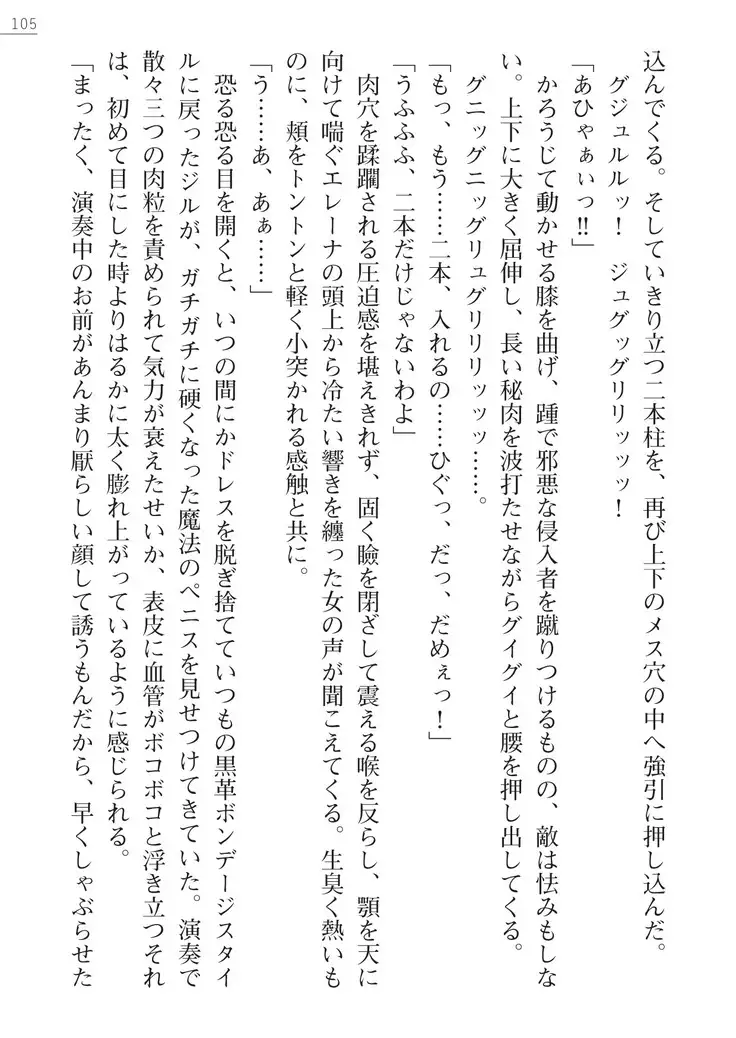 105
込んでくる。そしていきり立つ二本柱を、再び上下のメス穴の中へ強引に押し込んだ。
グジュルルッ！　ジュグッグリリッッッ！
「あひゃぁぃっ!!」
かろうじて動かせる膝を曲げ、踵で邪悪な侵入者を蹴りつけるものの、敵は怯みもしな
い。上下に大きく屈伸し、長い秘肉を波打たせながらグイグイと腰を押し出してくる。
グニッグニッグリュグリリリッッッ……。
「もっ、もう……二本、入れるの……ひぐっ、だっ、だめぇっ！」
「うふふふ、二本だけじゃないわよ」
肉穴を蹂躙される圧迫感を堪えきれず、固く瞼を閉ざして震える喉を反らし、顎を天に
向けて喘ぐエレーナの頭上から冷たい響きを纏った女の声が聞こえてくる。生臭く熱いも
のに、頬をトントンと軽く小突かれる感触と共に。
「う……あ、あぁ……」
恐る恐る目を開くと、いつの間にかドレスを脱ぎ捨てていつもの黒革ボンデージスタイ
ルに戻ったジルが、ガチガチに硬くなった魔法のペニスを見せつけてきていた。演奏で
散々三つの肉粒を責められて気力が衰えたせいか、表皮に血管がボコボコと浮き立つそれ
は、初めて目にした時よりはるかに太く膨れ上がっているように感じられる。
「まったく、演奏中のお前があんまり厭らしい顔して誘うもんだから、早くしゃぶらせた